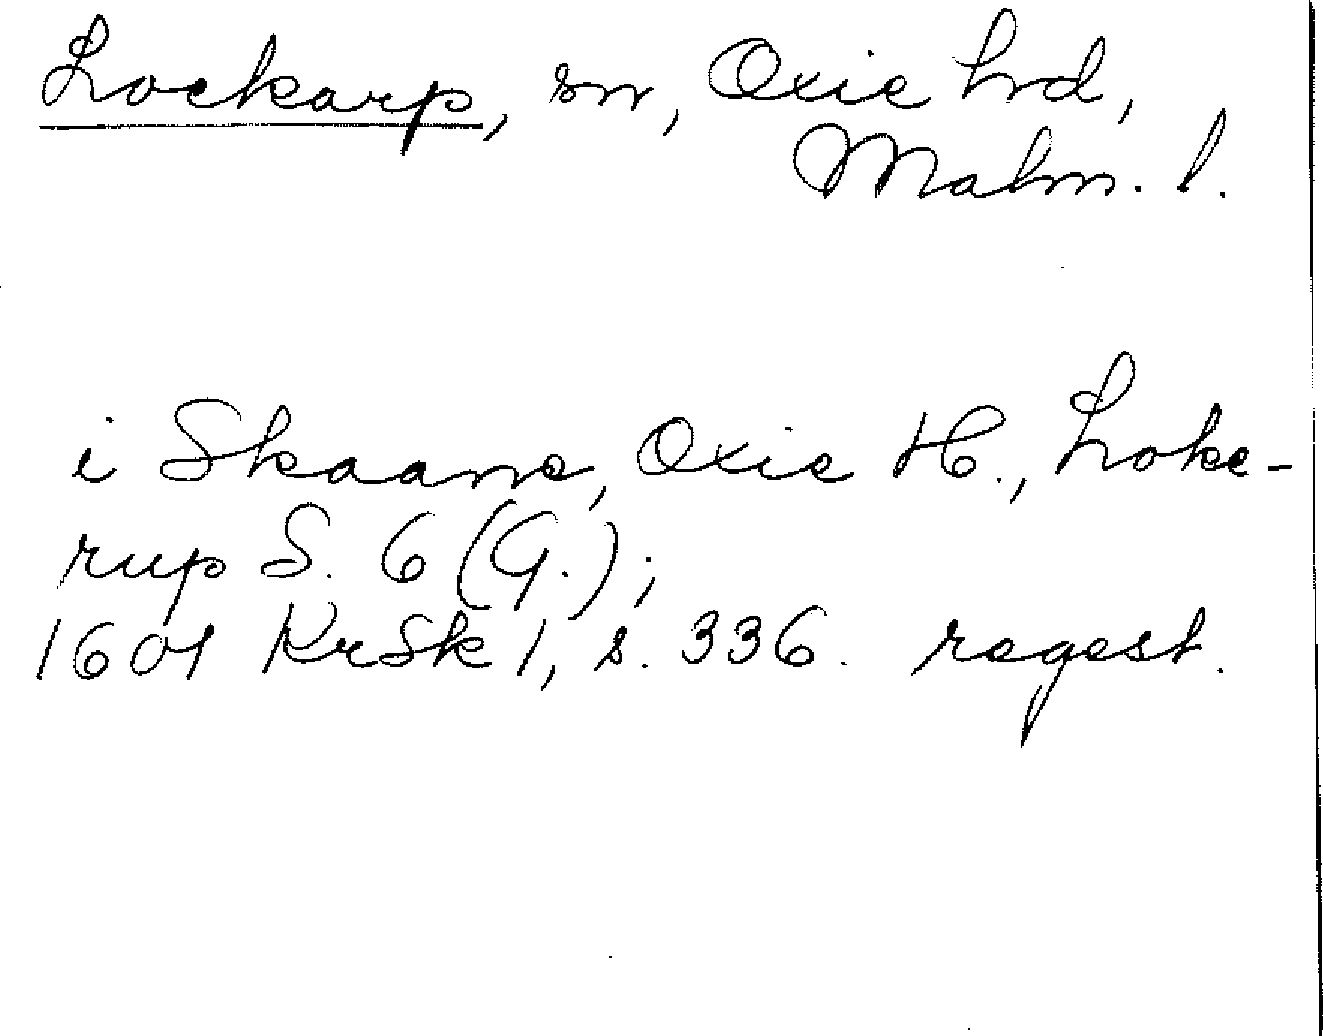 Lockarp, sn, Oxie hd,
Malm. l.
i Skaane, Oxie H., Loke-
rup S. 6 (G.);
1601 KrSk 1, s. 336. regest.